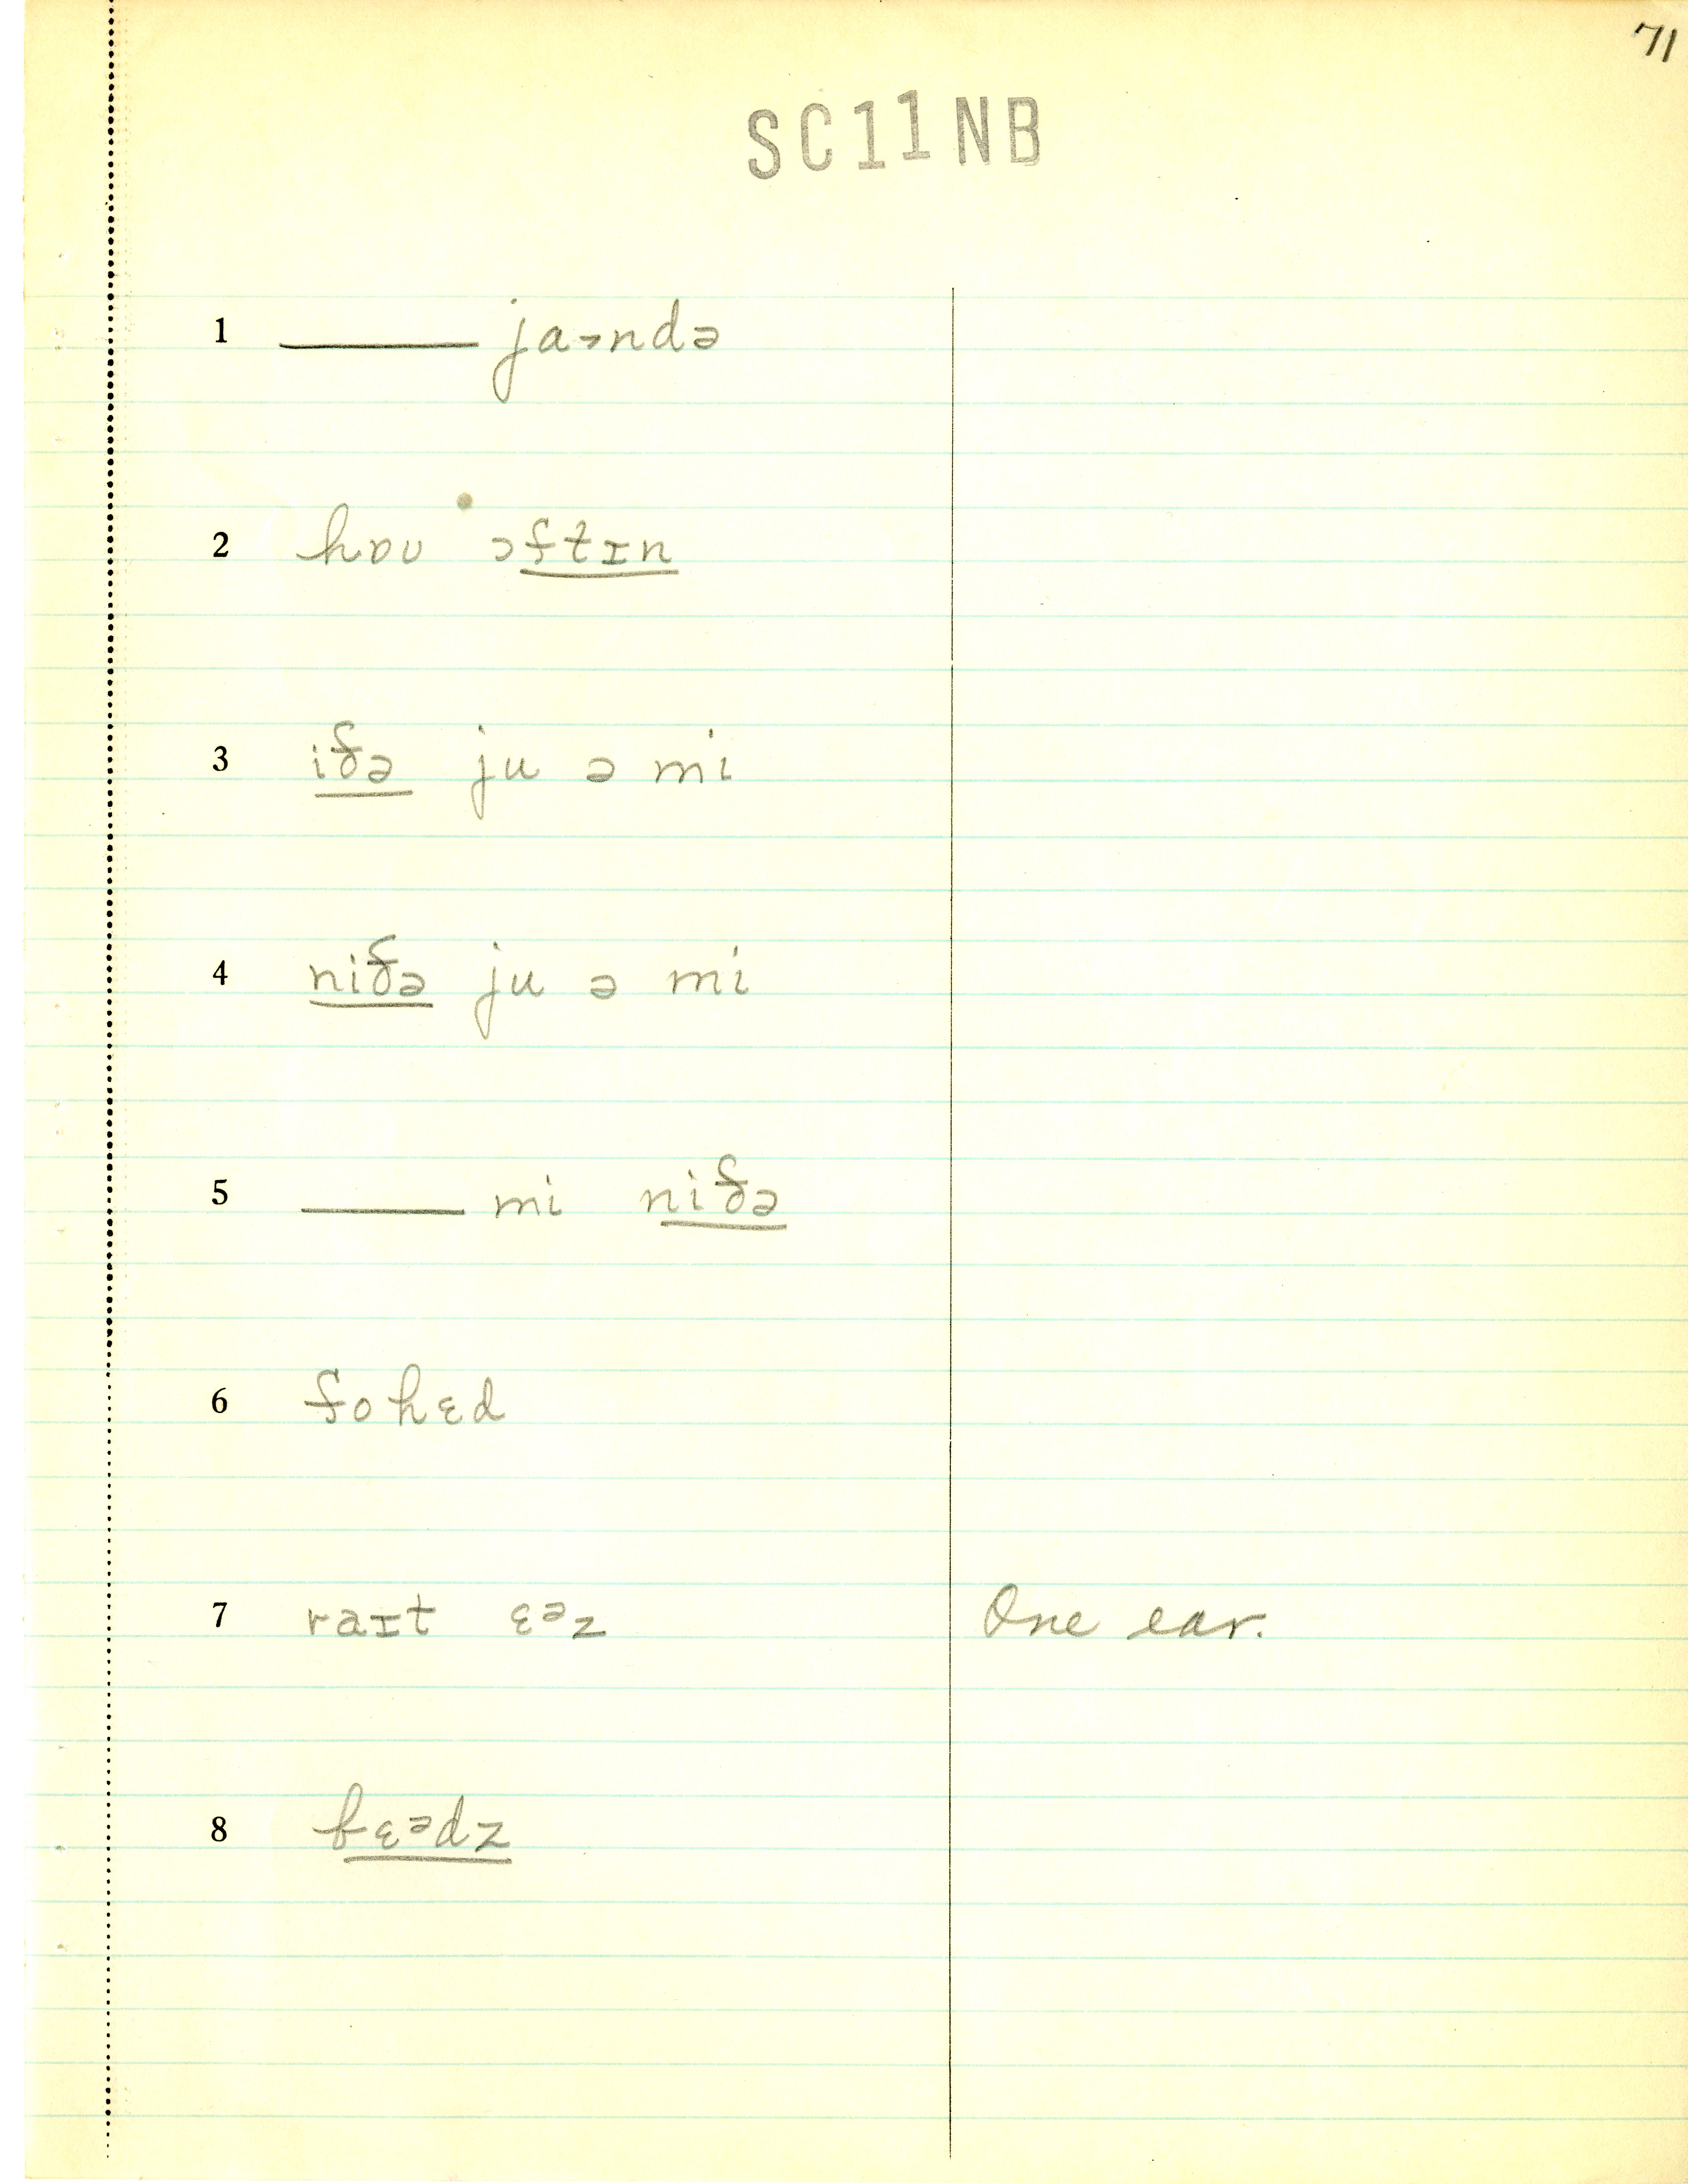 71
SC11NB
1 ______ jaɔndə
2 hɒʊ ɔftɪn
3 iðə ju ə mi
4 niðə ju ə mi
5 ______ mi niðə
6 fohɛd
7 raɪt ɛəz One ear.
8 bɛədz